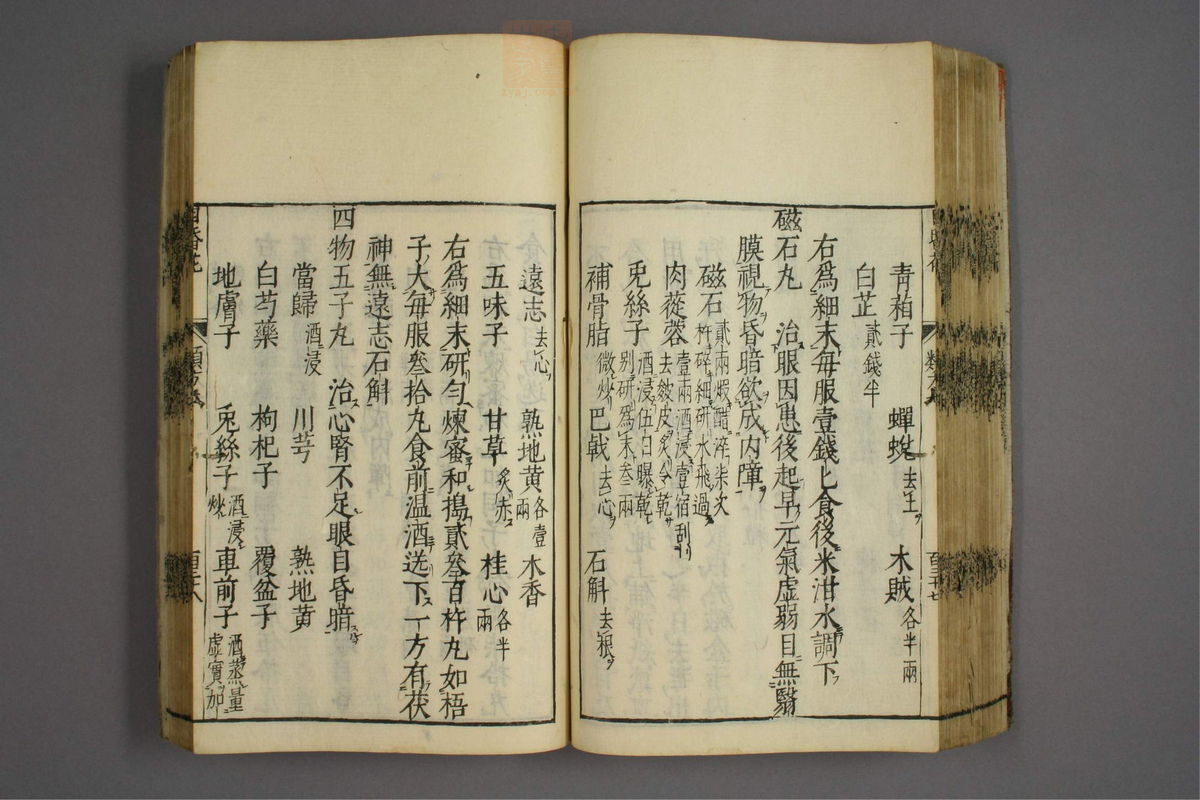 青葙子 蟬蛻去土 木賊各半兩
白芷貳錢半
右爲細末每服壹錢匕食後米泔水調下
磁石丸 治眼因患後起早元氣虛弱目無翳
膜視物昏暗欲成內障
磁石貳兩煆醋淬柒次杵碎細研水飛過
肉蓯蓉壹兩酒浸壹宿刮去皴皮炙令乾
兎絲子酒浸伍日曝乾別研爲末叁兩
補骨脂微炒 巴戟去心 石斛去根
遠志去心 熟地黄各壹兩 木香
五味子 甘草炙赤 桂心各半兩
右爲細末研勻煉蜜和搗貳叄百杵丸如梧
子大每服叄拾丸食前温酒送下一方有茯
神無遠志石斛
四物五子丸 治心腎不足眼目昏暗
當歸酒浸 川芎 熟地黄
白芍藥 枸杞子 覆盆子
地膚子 兎絲子酒浸炒 車前子酒蒸量虛實加